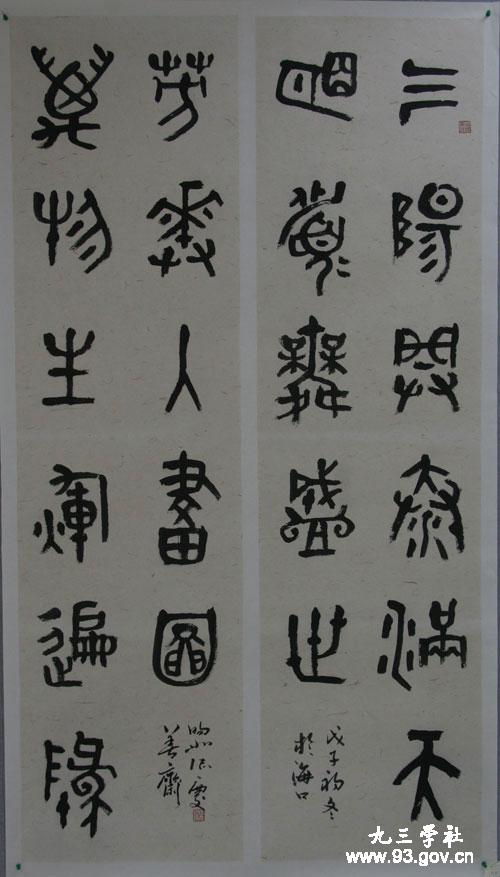 三陽開泰滿天
明舞盛世
戊子初冬
於海口
萬物生輝遍地
芳華人畫圖
善齋
九三学社
www.93.gov.cn